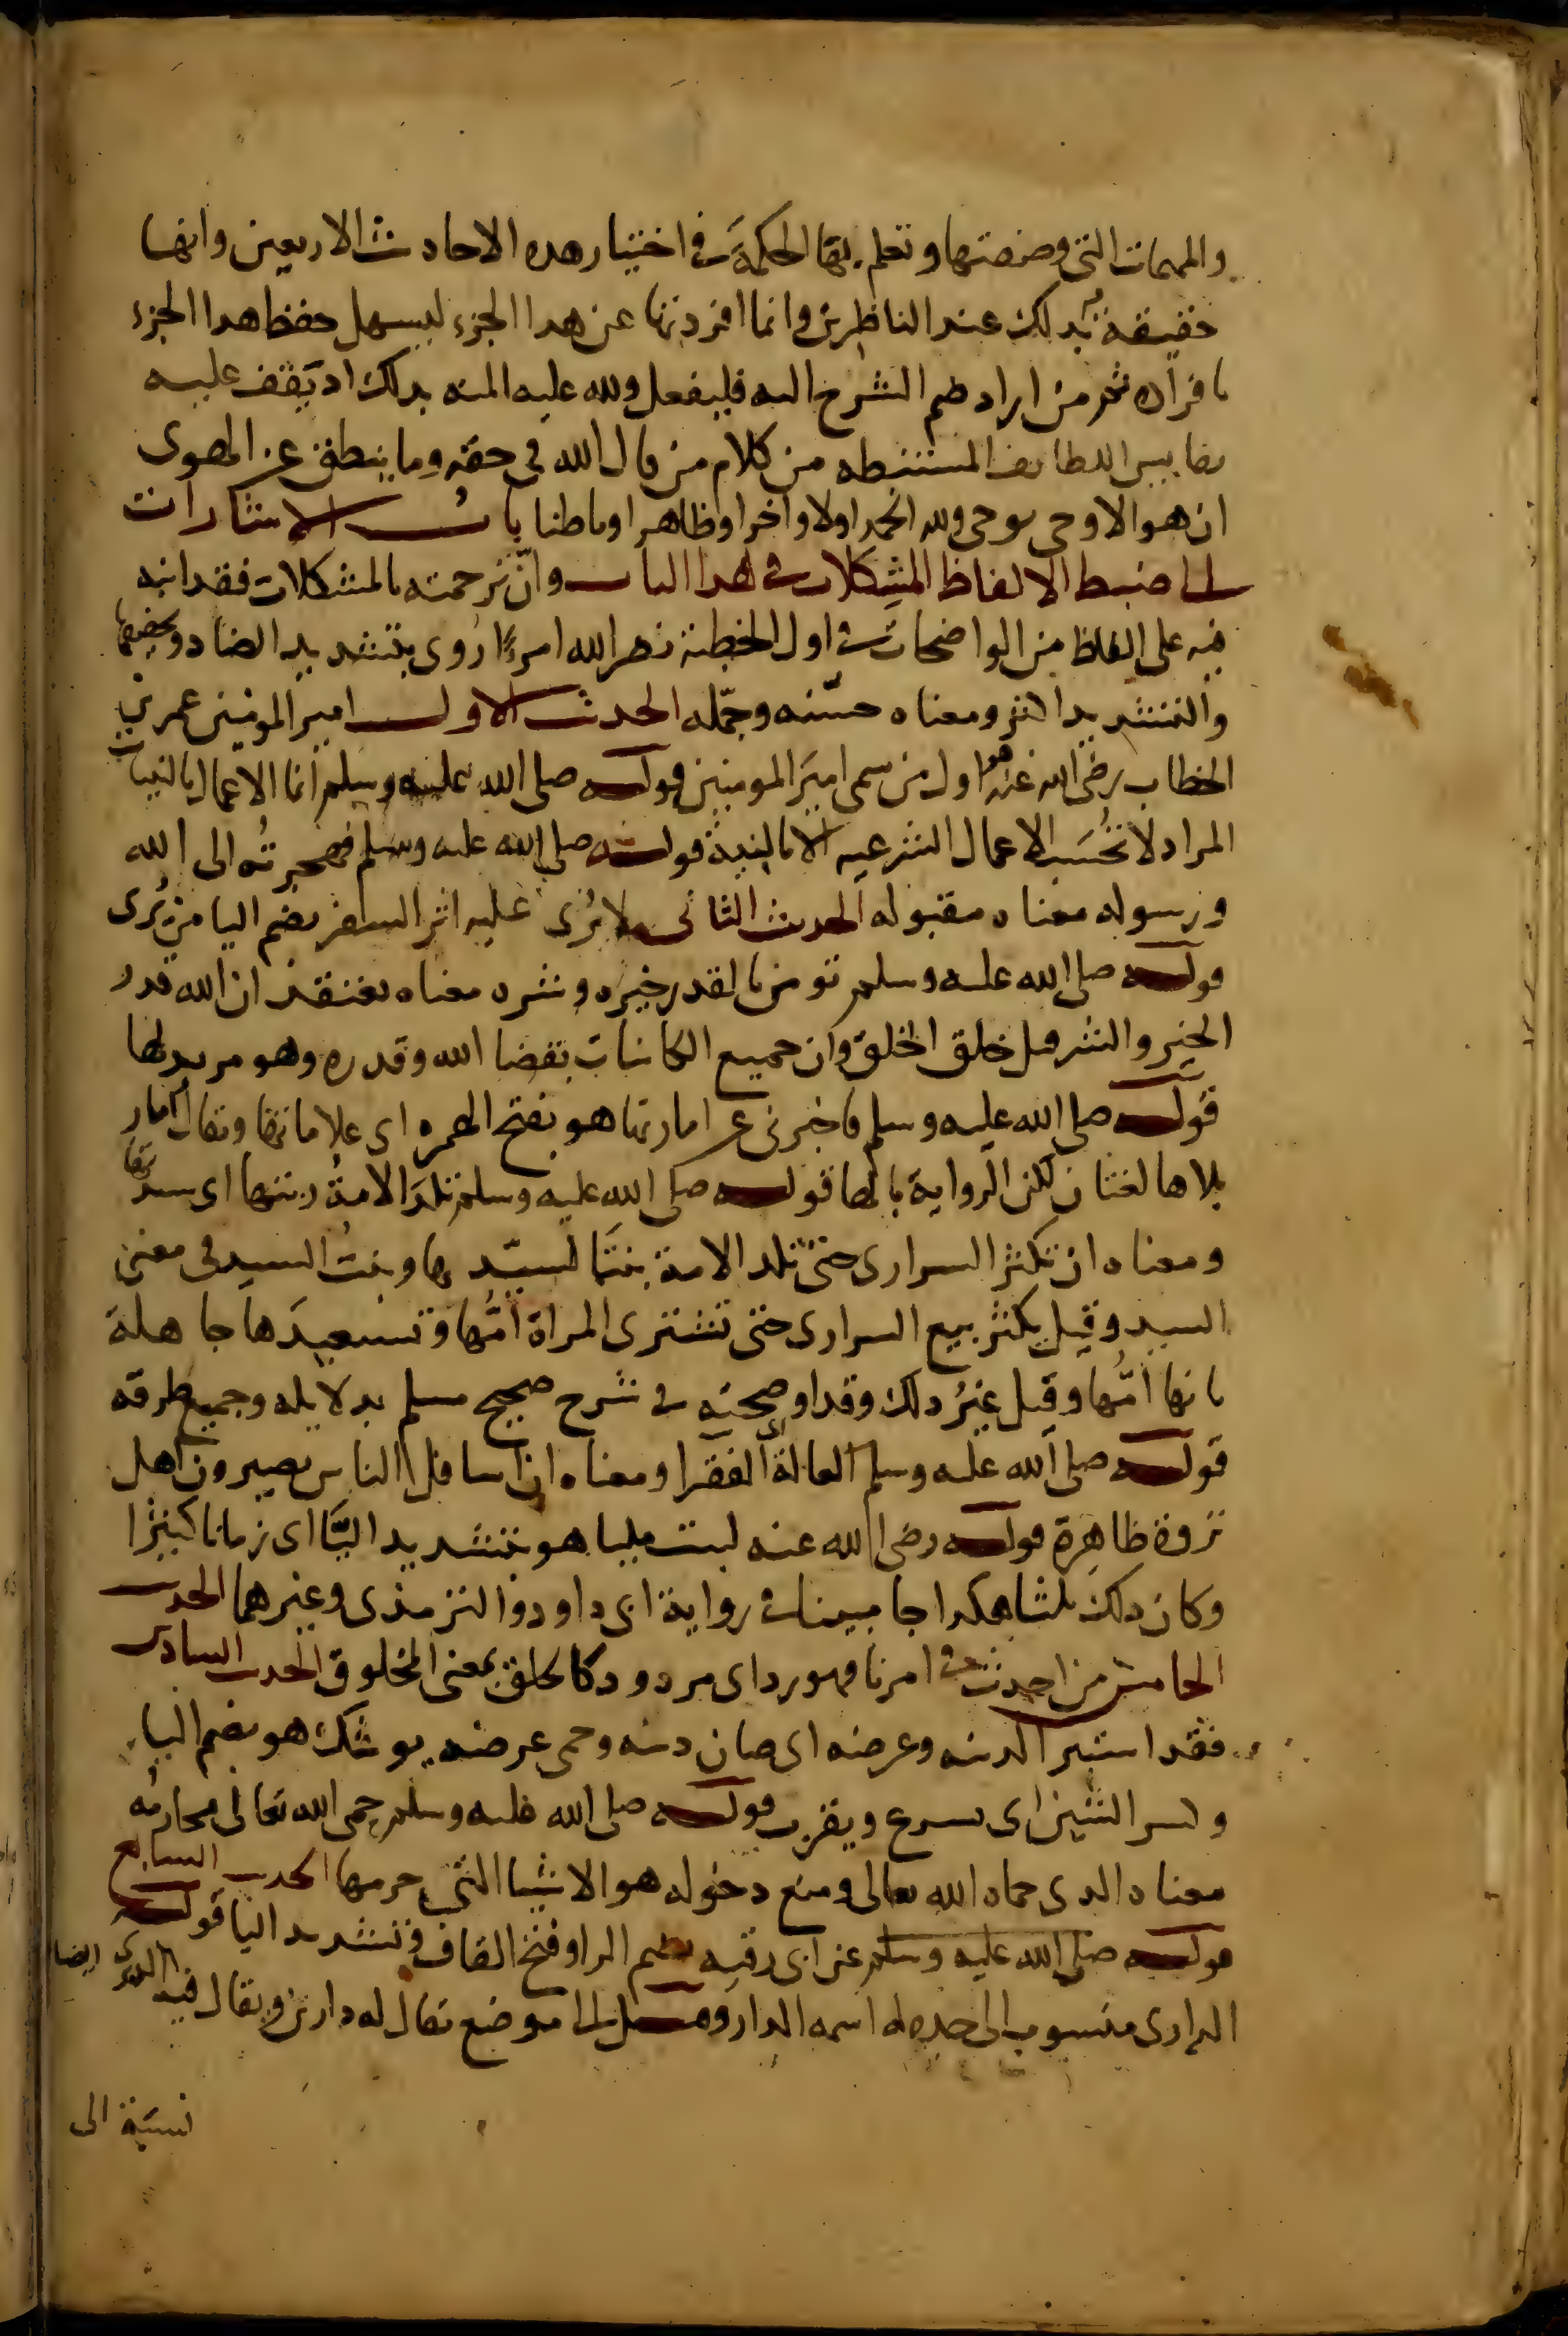 والمهمات التى وصفتها وتعلم بها الحكمة فى اختيار هذه الاحاديث الاربعين وانها
حقيقة بذلك عند الناظرين وانما افردتها عن هذا الجزء ليسهل حفظ هذا الجزء
بافراده ثم من اراد ضم الشرح اليه فليفعل ولله عليه المنه بذلك اذ يقف عليه
نفايس اللطايف المستنبطه من كلام من قال الله فى حقه وما ينطق عن الهوى
ان هو الا وحى يوحى ولله الحمد اولا واخرا وظاهرا وباطنا باب الاشارات
الى ضبط الالفاظ المشكلات فى هذا الباب وان ترجمته بالمشكلات فقد انبه
فيه على الفاظ من الواضحات فى اول الخطبة نضر الله امرءا روى بتشديد الضاد وتخفيفها
والتشديد اكثر ومعناه حسّنه وجمّله الحديث الاول امير المومنين عمر بن
الخطاب رضى الله عنه هو اول من سمى امير المومنين قوله صلى الله عليه وسلم انما الاعمال بالنيات
المراد لا تحسب الاعمال الشرعيه الا بالنية قوله صلى الله عليه وسلم فهجرته الى الله
ورسوله معناه مقبوله الحديث الثانى لا يُرى عليه اثر السفر بضم اليا من يُرى
قوله صلى الله عليه وسلم تومن بالقدر خيره وشره معناه تعتقد ان الله قدر
الخير والشر قبل خلق الخلق وان جميع الكاينات بقضا الله وقدره وهو مريد لها
قوله صلى الله عليه وسلم فاخبرنى عن اماراتها هو بفتح الهمزه اى علاماتها ويقال امار
بلا ها لغتان لكن الرواية بالها قوله صلى الله عليه وسلم تلد الامةُ ربتها اى سيدتها
ومعناه ان تكثر السرارى حتى تلد الامة بنتًا لسيّدها وبنتُ السيد فى معنى
السيد وقيل يكثر بيع السرارى حتى تشترى المراة امُّها وتستعبدَها جاهلة
بانها امُّها وقيل غيرُ ذلك وقد اوضحته فى شرح صحيح مسلم بدلايله وجميع طرقه
قوله صلى الله عليه وسلم العالة اى الفقرا ومعناه ان اسافل الناس يصيرون اهل
ثروة ظاهرة قوله رضى الله عنه لبث مليا هو بتشديد اليَّا اى زمانا كثيرًا
وكان ذلك ثلثا هكذا جا مبينا فى رواية ابى داود والترمذى وغيرهما الحديث
الخامس من احدث فى امرنا فهو رد اى مردود كالخلق بمعنى المخلوق الحديث السادس
فقد استبرا لدينه وعرضه اى صان دينه وحمى عرضه يوشك هو بضم اليا
وكسر الشين اى يسرع ويقرب قوله صلى الله عليه وسلم حمى الله تعالى محارمُه
معناه الذى حماه الله تعالى ومنع دخوله هو الاشيا التى حرمها الحديث السابع
قوله صلى الله عليه وسلم عن ابى رقيه بضم الرا وفتح القاف وتشديد اليا قوله
الدارى منسوب الى جد له اسمه الدار وقيل الى موضع يقال له دارين ويقال فيه الديرى ايضا
نسبَة الى